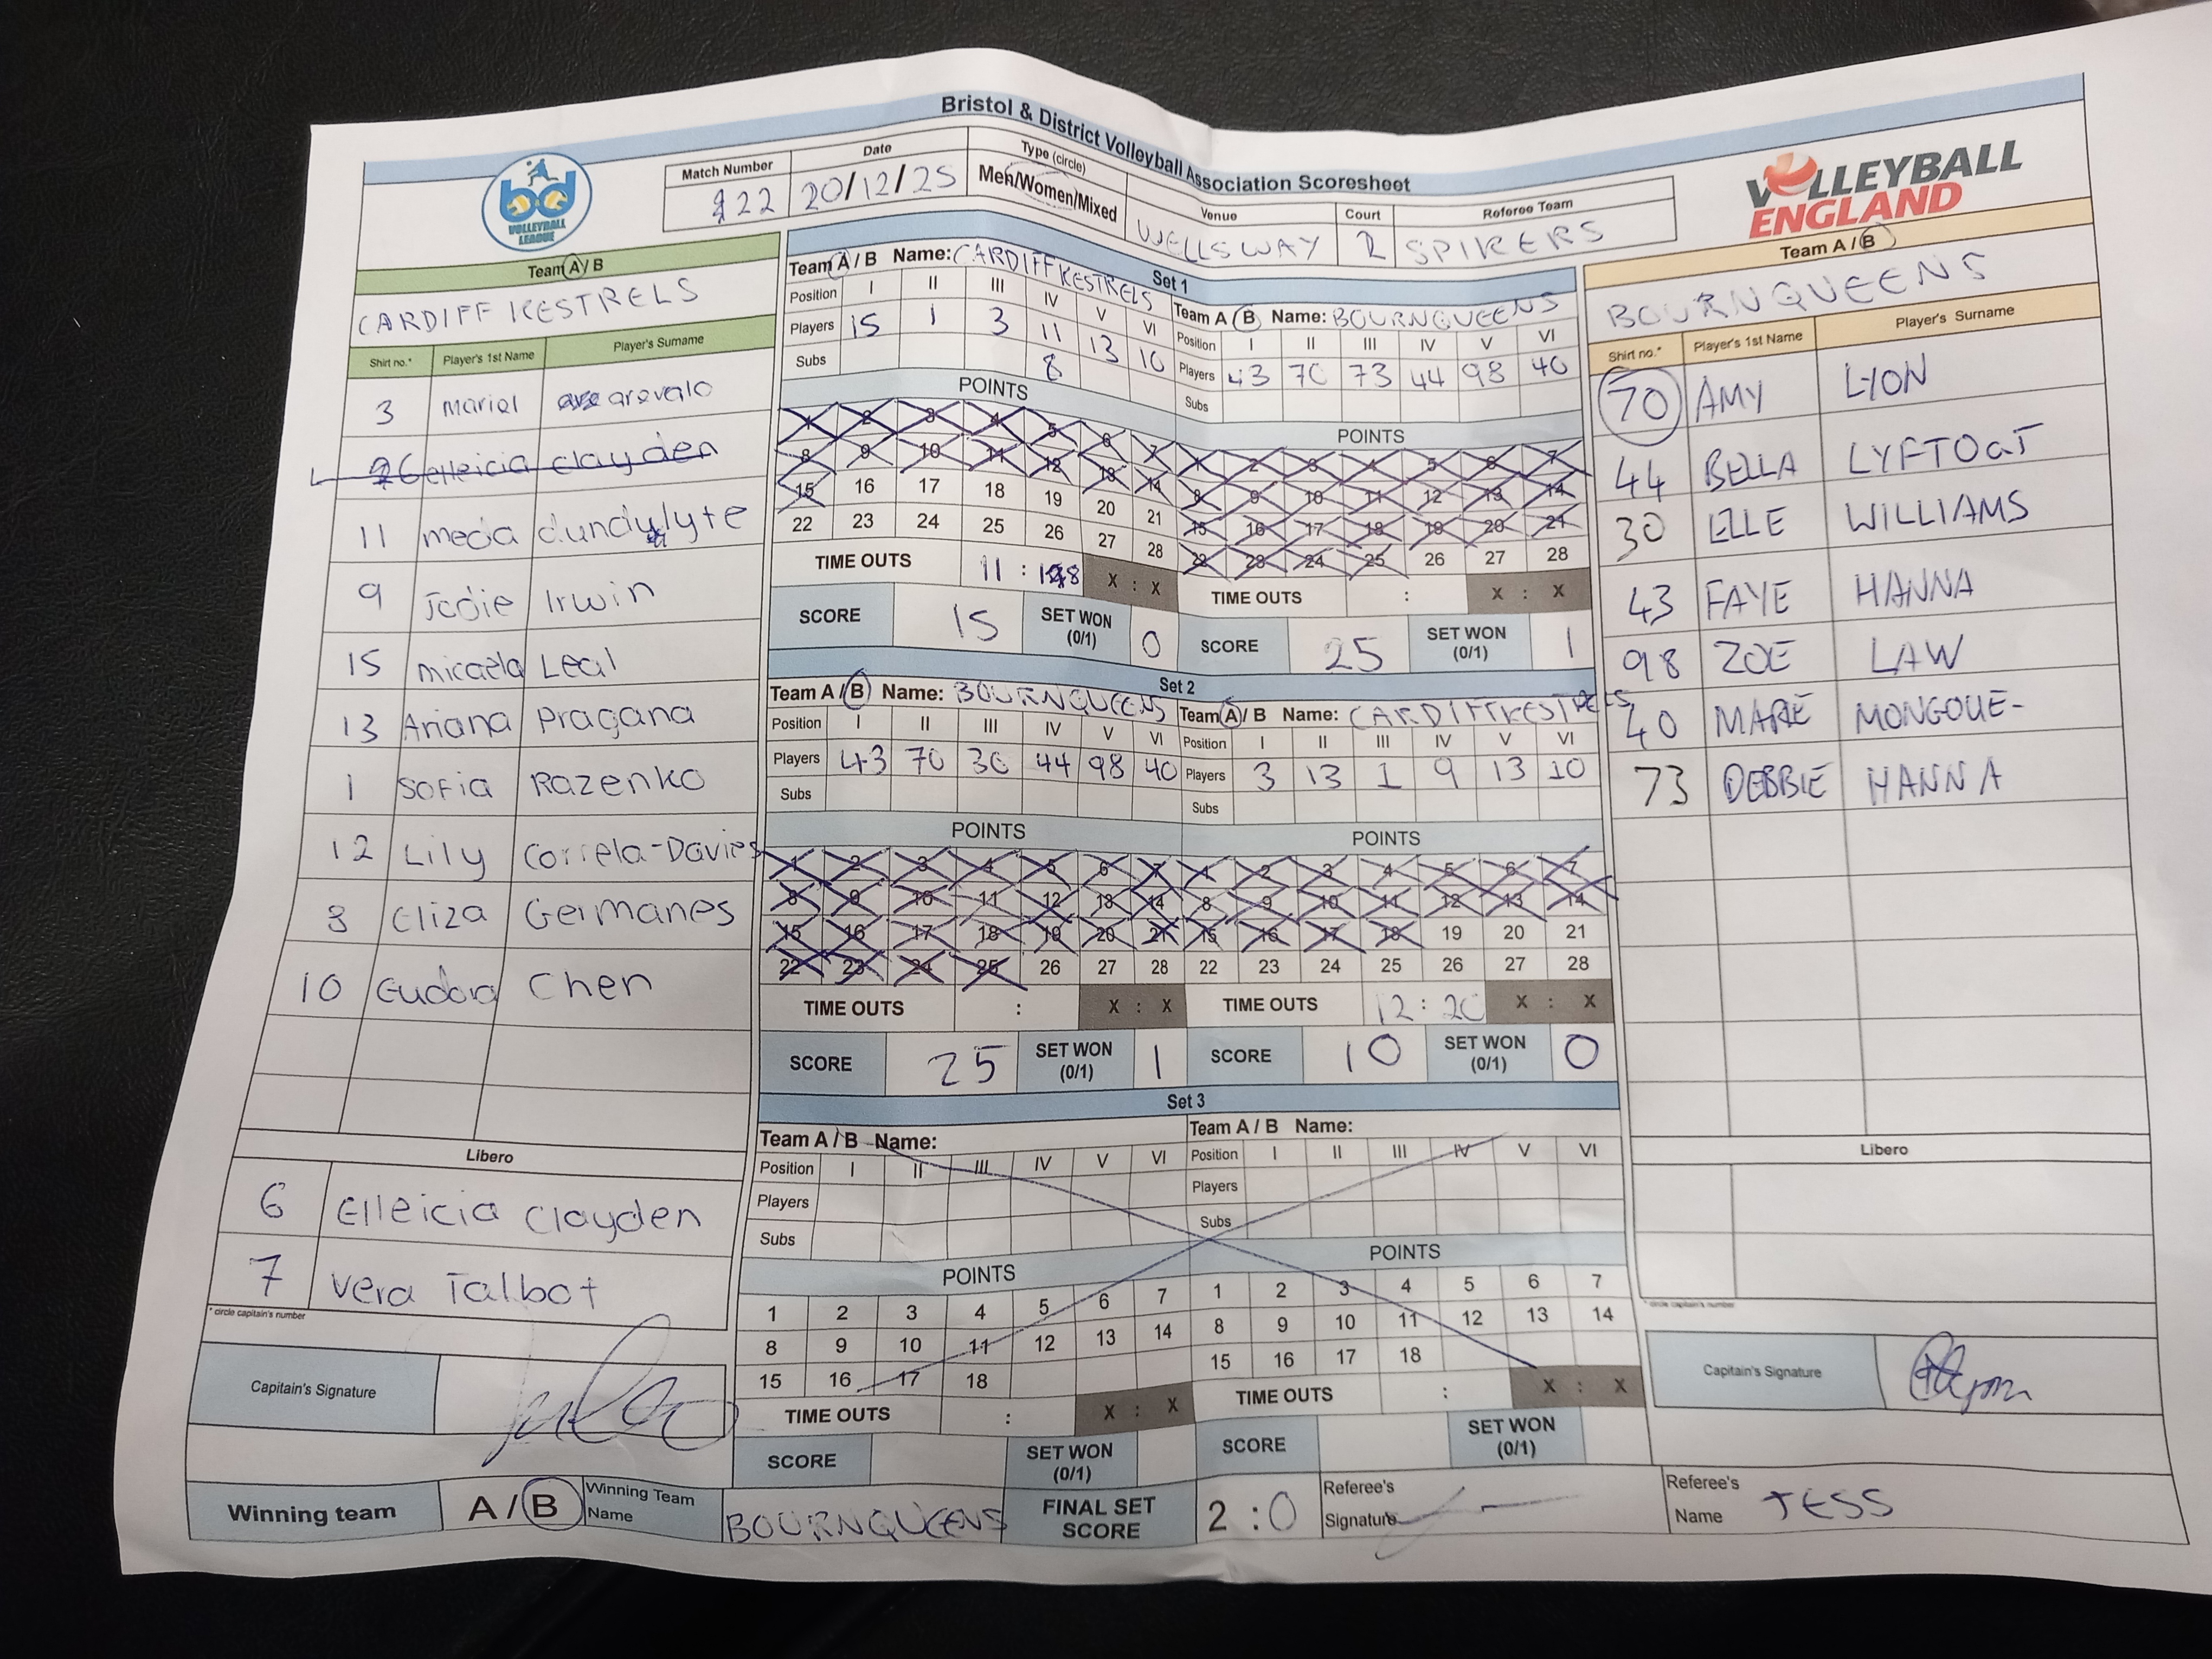 Bristol & District Volleyball Association Scoresheet
bd
VOLLEYBALL
LEAGUE
Match Number
122
Date
20/12/25
Type (circle)
Men/Women/Mixed
Venue
WELLSWAY
Court
2
Referee Team
SPIKERS
VOLLEYBALL
ENGLAND
Team A / B
CARDIFF KESTRELS
Shirt no.* Player's 1st Name Player's Surname
3 Mariel arevalo
elleicia clayden
11 meda
9 Jodie Irwin
15 micaela Leal
13 Ariana Pragana
1 Sofia Razenko
12 Lily Correla-Davies
8 Eliza Germanes
10 Eudora Chen
Libero
6 Elleicia Clayden
7 Vera Talbot
* circle captain's number
Capitain's Signature
Set 1
Team A / B Name: CARDIFF KESTRELS
Position I II III IV V VI
Players 15 1 3 11 13 10
Subs 8
POINTS
1 2 3 4 5 6 7
8 9 10 11 12 13 14
15 16 17 18 19 20 21
22 23 24 25 26 27 28
TIME OUTS 11 : 18 X : X
SCORE 15 SET WON (0/1) 0
Team A / B Name: BOURNQUEENS
Position I II III IV V VI
Players 43 70 73 44 98 40
Subs
POINTS
1 2 3 4 5 6 7
8 9 10 11 12 13 14
15 16 17 18 19 20 21
22 23 24 25 26 27 28
TIME OUTS : X : X
SCORE 25 SET WON (0/1) 1
Set 2
Team A / B Name: BOURNQUEENS
Position I II III IV V VI
Players 43 70 30 44 98 40
Subs
POINTS
1 2 3 4 5 6 7
8 9 10 11 12 13 14
15 16 17 18 19 20 21
22 23 24 25 26 27 28
TIME OUTS : X : X
SCORE 25 SET WON (0/1) 1
Team A / B Name: CARDIFFKESTRELS
Position I II III IV V VI
Players 3 13 1 9 13 10
Subs
POINTS
1 2 3 4 5 6 7
8 9 10 11 12 13 14
15 16 17 18 19 20 21
22 23 24 25 26 27 28
TIME OUTS 12 : 20 X : X
SCORE 10 SET WON (0/1) 0
Set 3
Team A / B Name:
Position I II III IV V VI
Players
Subs
POINTS
1 2 3 4 5 6 7
8 9 10 11 12 13 14
15 16 17 18
TIME OUTS : X : X
SCORE SET WON (0/1)
Team A / B Name:
Position I II III IV V VI
Players
Subs
POINTS
1 2 3 4 5 6 7
8 9 10 11 12 13 14
15 16 17 18
TIME OUTS : X : X
SCORE SET WON (0/1)
Team A / B
BOURNQUEENS
Shirt no.* Player's 1st Name Player's Surname
70 AMY LYON
44 BELLA LYFTOGT
30 ELLE WILLIAMS
43 FAYE HANNA
98 ZOE LAW
40 MARIE MONGOUE-
73 DEBBIE HANNA
Libero
* circle captain's number
Capitain's Signature
Winning team A / B
Winning Team Name BOURNQUEENS
FINAL SET SCORE 2 : 0
Referee's Signature
Referee's Name JESS